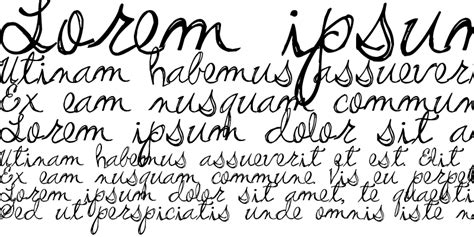 Lorem ipsum
Utinam habemus assuever
Ex eam nusquam commun
Lorem ipsum dolor sit a
Utinam habemus assueverit et est. Elit
Ex eam nusquam commune. Vis eu perpe
Lorem ipsum dolor sit amet, te quaesti
Sed ut perspiciatis unde omnis iste n